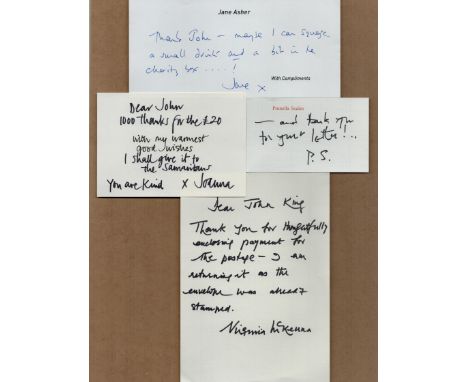 Jane Asher
Thanks John – maybe I can squeeze
a small drink and a bit in the
charity box . . . . !
With Compliments
Jane x
Dear John
1000 thanks for the £20
with my warmest
good wishes
I shall give it to
the Samaritans
You are kind x Joanna
Prunella Scales
— and thank you
for your letter!..
P.S.
Dear John King
Thank you for thoughtfully
enclosing payment for
the postage – I am
returning it as the
envelope was already
stamped.
Virginia McKenna